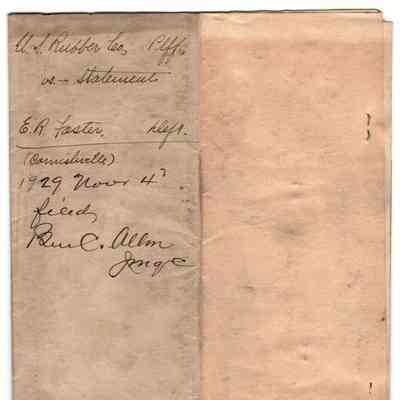 U.S. Rubber Co, Plff.
vs.- Statement
E.R. Foster. Deft.
(Cornishville)
1929 Novr 4"
filed,
Ben C. Allin